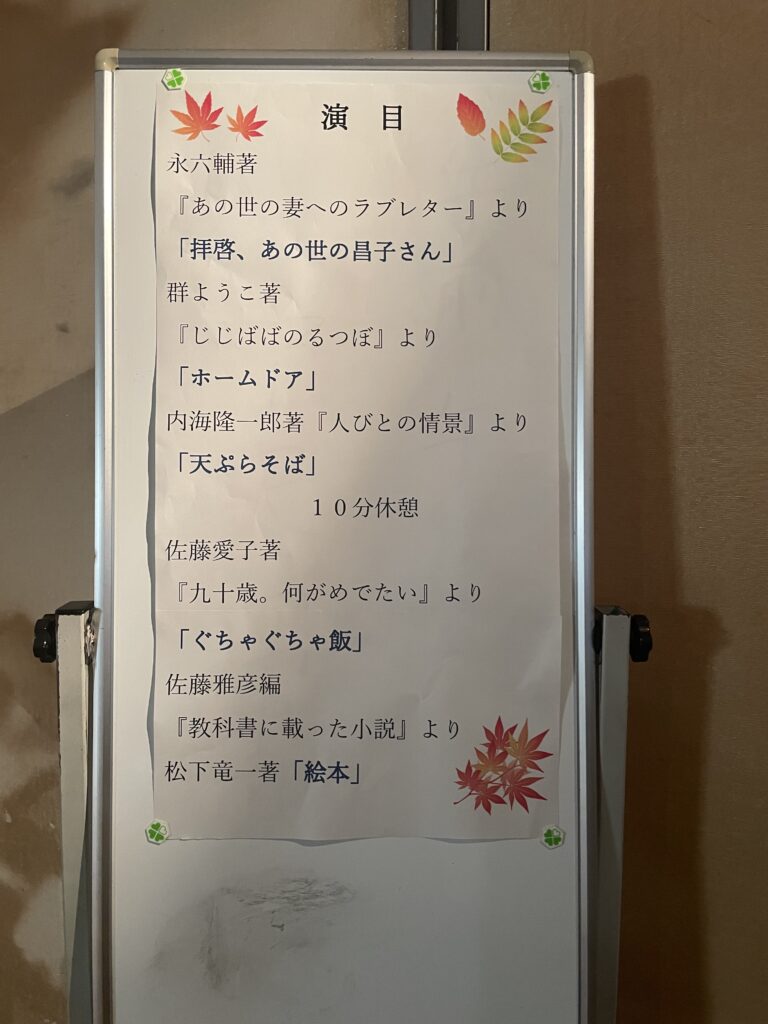 演　目
永六輔著
『あの世の妻へのラブレター』より
「拝啓、あの世の昌子さん」
群ようこ著
『じじばばのるつぼ』より
「ホームドア」
内海隆一郎著『人びとの情景』より
「天ぷらそば」
１０分休憩
佐藤愛子著
『九十歳。何がめでたい』より
「ぐちゃぐちゃ飯」
佐藤雅彦編
『教科書に載った小説』より
松下竜一著「絵本」